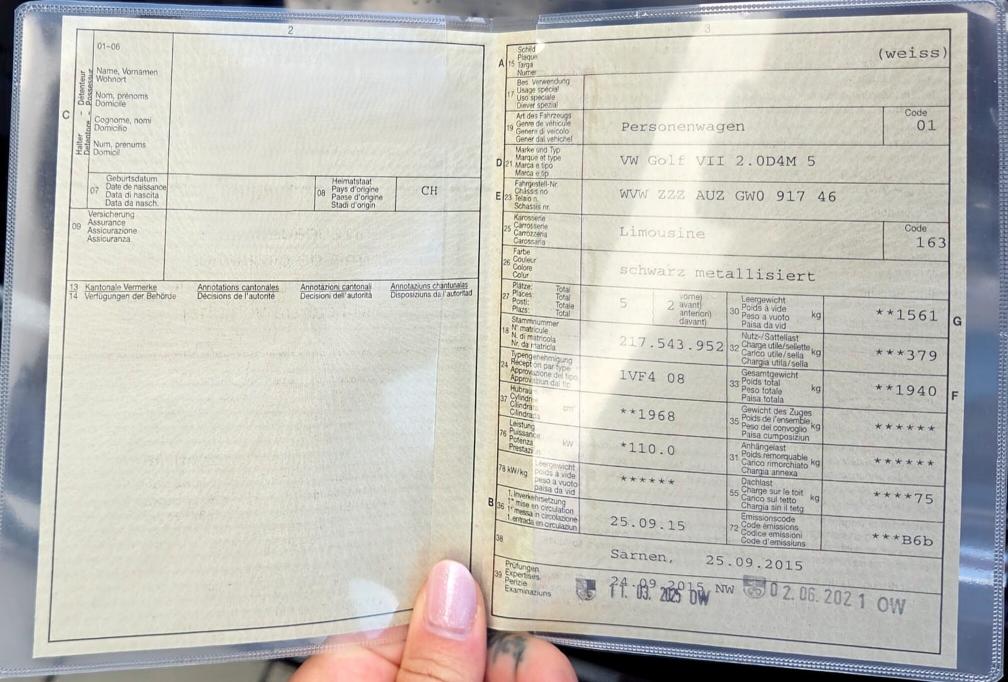 2
01-06
C
Halter - Détenteur
Detentore - Possessur
Name, Vornamen
Wohnort
Nom, prénoms
Domicile
Cognome, nomi
Domicilio
Num, prenums
Domicil
07
Geburtsdatum
Date de naissance
Data di nascita
Data da nasch.
08
Heimatstaat
Pays d'origine
Paese d'origine
Stadi d'origin
CH
09
Versicherung
Assurance
Assicurazione
Assicuranza
13 Kantonale Vermerke Annotations cantonales Annotazioni cantonali Annotaziuns chantunalas
14 Verfügungen der Behörde Décisions de l'autorité Decisioni dell'autorità Disposiziuns da l'autoritad
3
A 15
Schild
Plaque
Targa
Numer
(weiss)
17
Bes. Verwendung
Usage spécial
Uso speciale
Diever spezial
19
Art des Fahrzeugs
Genre de véhicule
Genere di veicolo
Gener dal vehichel
Personenwagen
Code
01
D 21
Marke und Typ
Marque et type
Marca e tipo
Marca e tip
VW Golf VII 2.0D4M 5
E 23
Fahrgestell-Nr.
Châssis no
Telaio n.
Schassis nr.
WVW ZZZ AUZ GW0 917 46
25
Karosserie
Carrosserie
Carrozzeria
Carossaria
Limousine
Code
163
26
Farbe
Couleur
Colore
Colur
schwarz metallisiert
27
Plätze: Total
Places: Total
Posti: Totale
Plazs: Total
5
2
vorne)
avant)
anteriori)
davant)
30
Leergewicht
Poids à vide
Peso a vuoto
Paisa da vid
kg
**1561
G
18
Stammnummer
N° matricule
N. di matricola
Nr. da matricla
217.543.952
32
Nutz-/Sattellast
Charge utile/sellette
Carico utile/sella
Chargia utila/sella
kg
***379
24
Typengenehmigung
Réception par type
Approvazione del tipo
Approvaziun dal tip
1VF4 08
33
Gesamtgewicht
Poids total
Peso totale
Paisa totala
kg
**1940
F
37
Hubraum
Cylindrée
Cilindrata
Cilindrada
cm³
**1968
35
Gewicht des Zuges
Poids de l'ensemble
Peso del convoglio
Paisa cumposiziun
kg
******
76
Leistung
Puissance
Potenza
Prestaziun
kW
*110.0
31
Anhängelast
Poids remorquable
Carico rimorchiato
Chargia annexa
kg
******
78 kW/kg
Leergewicht
poids à vide
peso a vuoto
paisa da vid
******
55
Dachlast
Charge sur le toit
Carico sul tetto
Chargia sin il tetg
kg
****75
B 36
1. Inverkehrsetzung
1re mise en circulation
1a messa in circolazione
1. entrada en circulaziun
25.09.15
72
Emissionscode
Code émissions
Codice emissioni
Code d'emissiuns
***B6b
38
Sarnen, 25.09.2015
39
Prüfungen
Expertises
Perizie
Examinaziuns
24.09.2015 NW
11. 03. 2025 OW
02.06.2021 OW